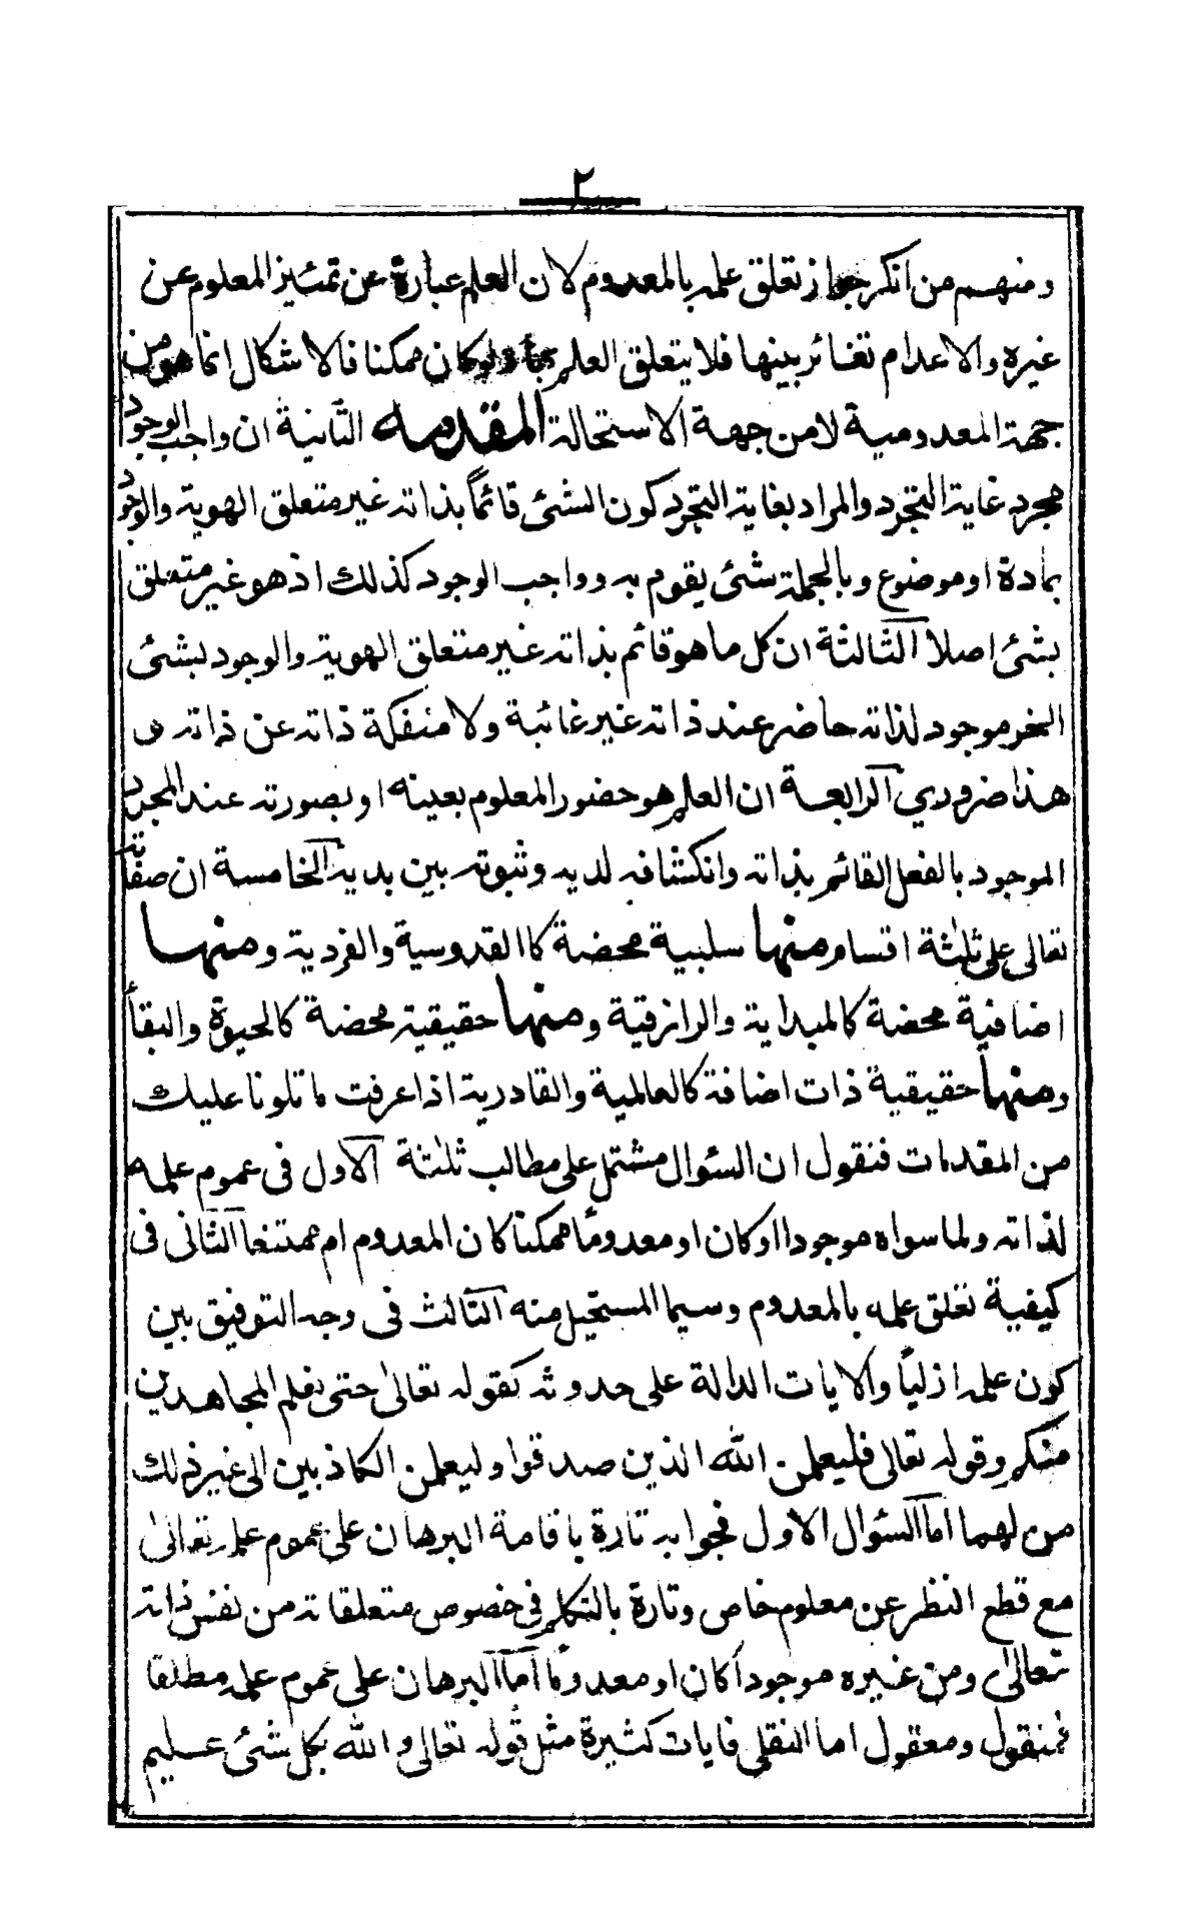 ٢
ومنهم من انكر جواز تعلق علمه بالمعدوم لان العلم عبارة عن تمئيز المعلوم عن
غيره والاعدام تغائر بينها فلا يتعلق العلم بها ولو كان ممكنا فالاشكال انما هو من
جهة المعدومية لا من جهة الاستحالة المقدمه الثانية ان واجب الوجود
مجرد غاية التجرد والمراد بغاية التجرد كون الشئ قائمًا بذاته غير متعلق الهوية والوجود
بمادة او موضوع وبالجملة شئ يقوم به وواجب الوجود كذلك اذ هو غير متعلق
بشئ اصلا الثالثة ان كل ما هو قائم بذاته غير متعلق الهوية والوجود بشئ
اخر موجود لذاته حاضر عند ذاته غير غائبة ولا منفكة ذاته عن ذاته و
هذا ضروري الرابعة ان العلم هو حضور المعلوم بعينه او بصورته عند المجرد
الموجود بالفعل القائم بذاته وانكشافه لديه وثبوته بين يديه الخامسة ان صفاته
تعالى على ثلثة اقسام منها سلبية محضة كالقدوسية والفردية ومنها
اضافية محضة كالمبداية والرازقية ومنها حقيقية محضة كالحيوة والبقأ
ومنها حقيقية ذات اضافة كالعالمية والقادرية اذا عرفت ما تلونا عليك
من المقدمات فنقول ان السئوال مشتمل على مطالب ثلثة الاول فى عموم علمه
لذاته ولما سواه موجودا اوكان او معدومًا ممكنا كان المعدوم ام ممتنعا الثانى فى
كيفية تعلق علمه بالمعدوم وسيما المستحيل منه الثالث فى وجه التوفيق بين
كون علمه ازليًا والايات الدالة على حدوثه كقوله تعالىٰ حتى نعلم المجاهدين
منكم وقوله تعالى فليعلمن الله الذين صدقوا وليعلمن الكاذبين الى غير ذلك
من لهما اما السئوال الاول فجوابه تارة باقامة البرهان على عموم علمه تعالىٰ
مع قطع النظر عن معلوم خاص وتارة بالتكلم فى خصوص متعلقاته من نفس ذاته
تعالىٰ ومن غيره موجوداً كان او معدومًا اما البرهان على عموم علمه مطلقا
فمنقول ومعقول اما النقلى فايات كثيرة مثل قوله تعالى والله بكل شئ عليم